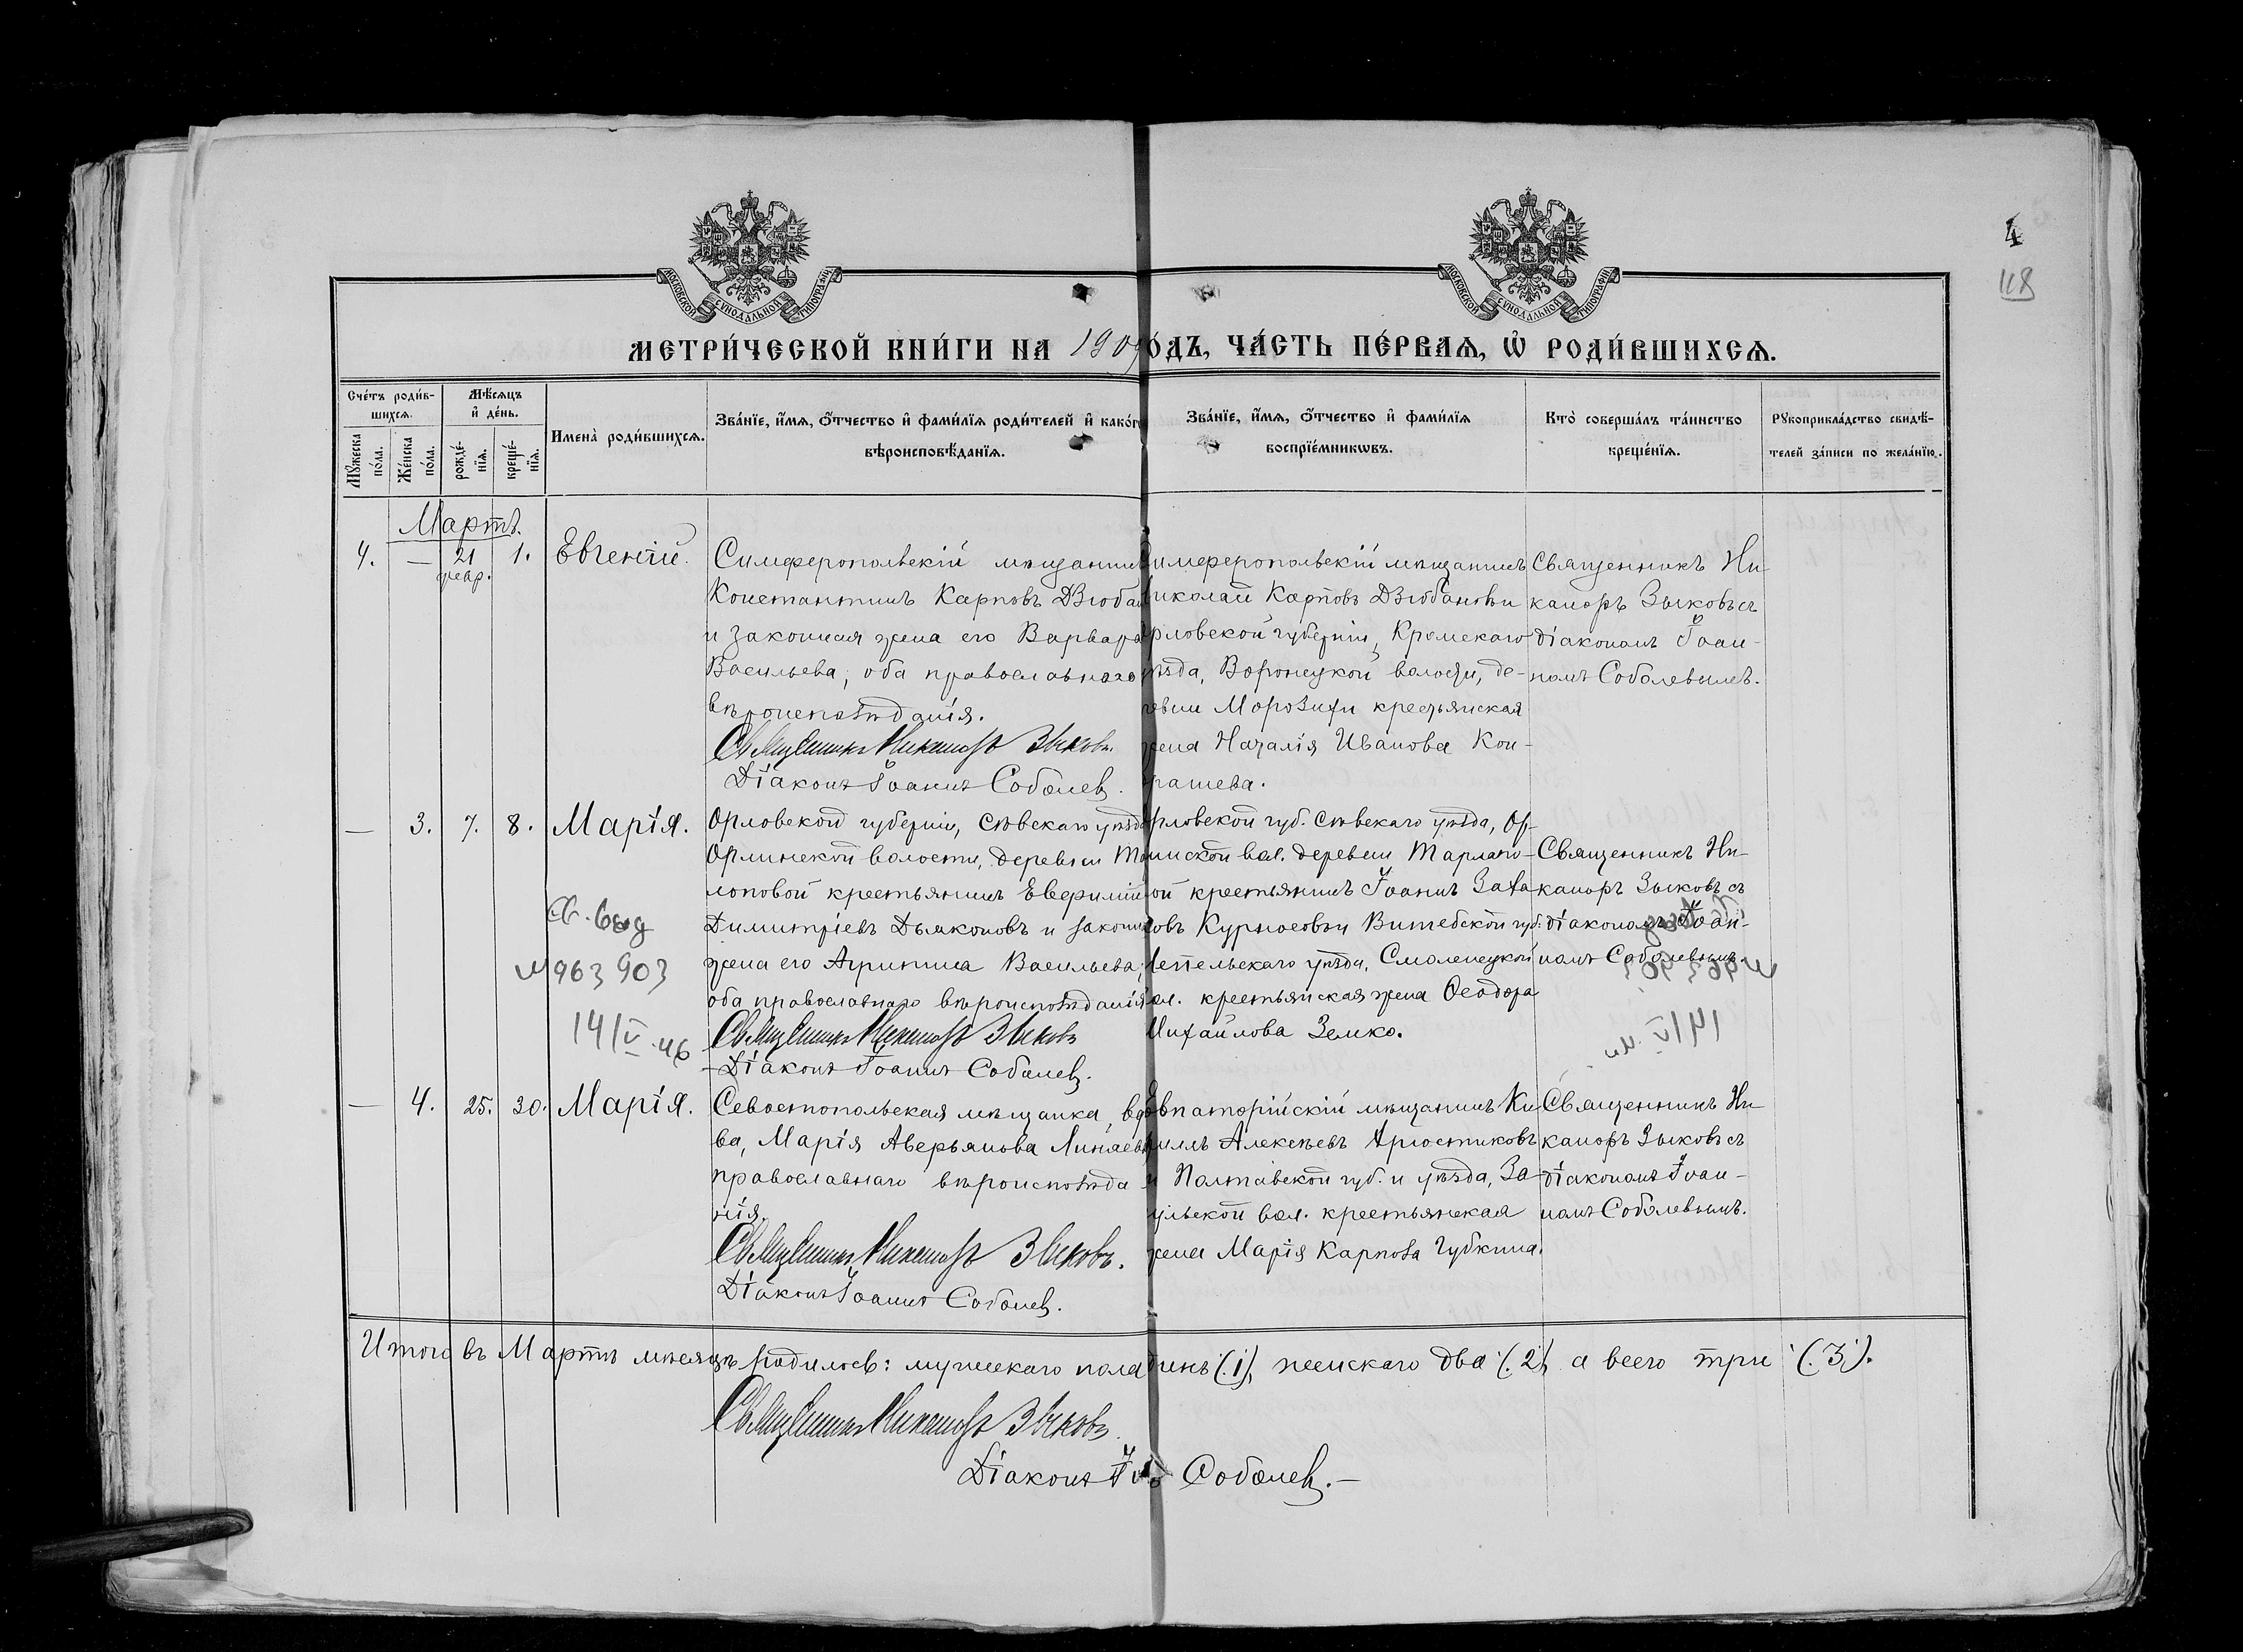 4
118
МОСКОВСКОЙ СУНОДАЛЬНОЙ ТИПОГРАФІИ
МОСКОВСКОЙ СУНОДАЛЬНОЙ ТИПОГРАФІИ
МЕТРИ́ЧЕСКОЙ КНИ́ГИ НА 1909 О́ДЪ, ЧА́СТЬ ПЕ́РВАѦ, Ѡ҆ РОДИ́ВШИХСѦ.
Сче́тъ роди́в-
шихсѧ.
Мꙋ́жеска по́ла.
Же́нска по́ла.
Мѣ́сѧцъ и҆ де́нь.
рожде́-
нїѧ.
креще́-
нїѧ.
Имена̀ роди́вшихсѧ.
Зва́нїе, и҆́мѧ, ѻ҆́тчество и҆ фами́лїѧ роди́телей и҆ како́г
вѣроисповѣ́данїѧ.
Зва́нїе, и҆́мѧ, ѻ҆́тчество и҆ фами́лїѧ
воспрїе́мникѡвъ.
Кто̀ соверша́лъ та́инство
креще́нїѧ.
Рꙋкоприкла́дство свидѣ́-
телей за́писи по жела́нїю.
Мартъ.
4. — 21 февр. 1. Евгеній.
Симферопольскій мѣщанин
Константинъ Карповъ Дзюба
и законная жена его Варвара
Васильева, оба православнаго
вѣроисповѣданія.
Священникъ Никаноръ Зыковъ.
Діаконъ Іоаннъ Соболев.
имферопольскій мѣщанинъ
иколай Карповъ Дзюбановъ и
рловской губерніи, Кромскаго
ѣзда, Воронецкой волости, де-
евни Морозихи крестьянская
жена Наталія Иванова Кон-
рашева.
Священникъ Ни-
каноръ Зыковъ съ
діакономъ Іоан-
номъ Соболевымъ.
— 3. 7. 8. Марія.
Св. выд
963 903
14/V 46
Орловской губерніи, Сѣвскаго уѣзда
Орлинской волости, деревни Та
лоповой крестьянинъ Евфимій
Димитріевъ Дьяконовъ и законн
жена его Агрипина Васильева,
оба православнаго вѣроисповѣданія
Священникъ Никаноръ Зыковъ
Діаконъ Іоаннъ Соболев.
рловской губ. Сѣвскаго уѣзда, Ор-
инской вол. деревни Тарлапо-
ой крестьянинъ Іоаннъ Заха
овъ Курносовъ и Витебской губ.
Лепельскаго уѣзда, Смоленецкой
ол. крестьянская жена Ѳеодора
Михайлова Земко.
Священникъ Ни-
каноръ Зыковъ съ
діакономъ Іоан-
номъ Соболевымъ.
— 4. 25. 30. Марія.
Севастопольская мѣщанка, вдо
ва, Марія Аверьянова Линяева
православнаго вѣроисповѣда
нія.
Священникъ Никаноръ Зыковъ.
Діаконъ Іоаннъ Соболев.
Евпаторійскій мѣщанинъ Ки
риллъ Алексѣевъ Хрюстиковъ
и Полтавской губ. и уѣзда, За-
жена Марія Карпова Губкина.
Священникъ Ни-
каноръ Зыковъ съ
діакономъ Іоан-
номъ Соболевымъ.
Итого въ Мартѣ мѣсяцѣ родилось: мужскаго пола одинъ (1), женскаго два (2), а всего три (3).
Священникъ Никаноръ Зыковъ.
Діаконъ Іо Соболев.—